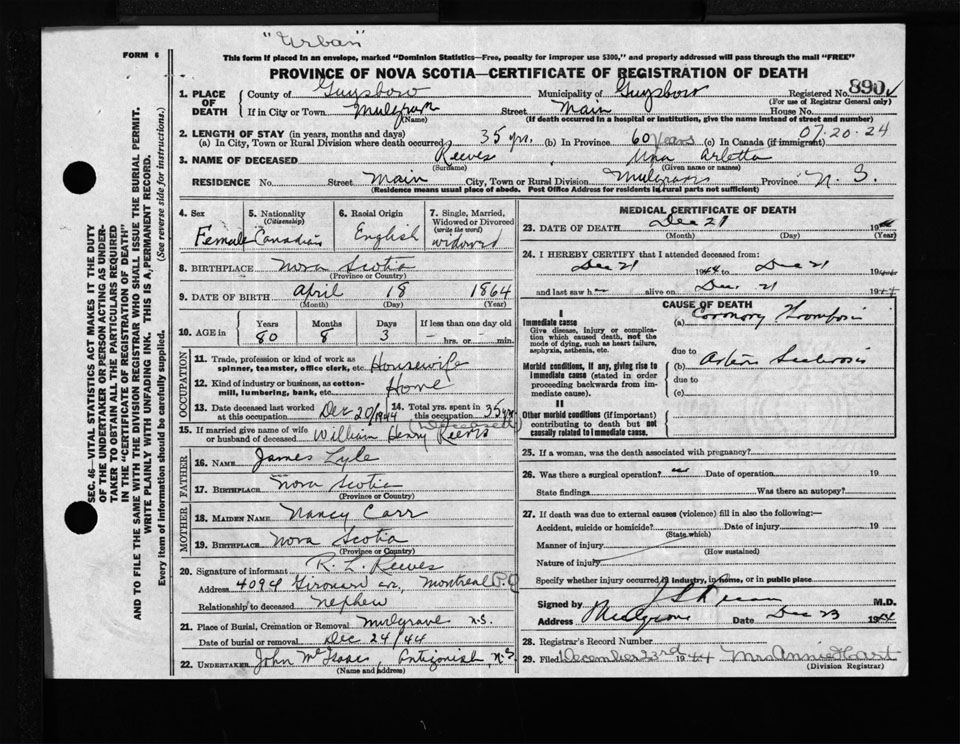 "Urban"
FORM 6
This form if placed in an envelope, marked "Dominion Statistics—Free, penalty for improper use $300," and property addressed will pass through the mail "FREE"
PROVINCE OF NOVA SCOTIA—CERTIFICATE OF REGISTRATION OF DEATH
1. PLACE OF DEATH { County of Guysboro Municipality of Guysboro Registered No. 890
(For use of Registrar General only)
If in City or Town Mulgrave Street Main House No.
(Name) (If death occurred in a hospital or institution, give the name instead of street and number)
07-20-24
2. LENGTH OF STAY (in years, months and days)
(a) In City, Town or Rural Division where death occurred 35 yrs. (b) In Province 60 years (c) In Canada (if immigrant)
3. NAME OF DECEASED Reeves Una Arletta
(Surname) (Given name or names)
RESIDENCE No. Street Main City, Town or Rural Division Mulgrave Province N. S.
(Residence means usual place of abode. Post Office Address for residents in rural parts not sufficient)
4. Sex Female
5. Nationality (Citizenship) Canadian
6. Racial Origin English
7. Single, Married, Widowed or Divorced (write the word) widowed
8. BIRTHPLACE Nova Scotia
(Province or Country)
9. DATE OF BIRTH April 18 1864
(Month) (Day) (Year)
10. AGE in Years 80 Months 8 Days 3 If less than one day old hrs. or min.
OCCUPATION
11. Trade, profession or kind of work as spinner, teamster, office clerk, etc. Housewife
12. Kind of industry or business, as cotton-mill, lumbering, bank, etc. Home
13. Date deceased last worked at this occupation Dec 20/1944 14. Total yrs. spent in this occupation 35 yrs
(Deceased)
15. If married give name of wife or husband of deceased William Henry Reeves
FATHER
16. NAME James Lyle
17. BIRTHPLACE Nova Scotia
(Province or Country)
MOTHER
18. MAIDEN NAME Nancy Carr
19. BIRTHPLACE Nova Scotia
(Province or Country)
20. Signature of informant R. L. Reeves
Address 4094 Girouard av, Montreal P.Q
Relationship to deceased nephew
21. Place of Burial, Cremation or Removal Mulgrave N.S.
Date of burial or removal Dec 24/44
22. UNDERTAKER John McIsaac, Antigonish N.S
(Name and address)
MEDICAL CERTIFICATE OF DEATH
23. DATE OF DEATH Dec 21 19
(Month) (Day) (Year)
24. I HEREBY CERTIFY that I attended deceased from:
Dec 21 1944 to Dec 21 1944
and last saw h alive on Dec 21 1944
CAUSE OF DEATH
I
Immediate cause (a) Coronary Thrombosis
Give disease, injury or complication which caused death, not the mode of dying, such as heart failure, asphyxia, asthenia, etc.
due to
Morbid conditions, if any, giving rise to immediate cause (stated in order proceeding backwards from immediate cause). (b) Arterio Sclerosis
due to
(c)
II
Other morbid conditions (if important) contributing to death but not causally related to immediate cause.
25. If a woman, was the death associated with pregnancy?
26. Was there a surgical operation? no Date of operation 19
State findings Was there an autopsy?
27. If death was due to external causes (violence) fill in also the following:—
Accident, suicide or homicide? Date of injury 19
(State which)
Manner of injury
(How sustained)
Nature of injury
Specify whether injury occurred in industry, in home, or in public place
Signed by M.D.
Address Mulgrave Date Dec 23 1944
28. Registrar's Record Number
29. Filed December 23rd 1944 Mrs Annie Hart
(Division Registrar)
SEC. 46—VITAL STATISTICS ACT MAKES IT THE DUTY
OF THE UNDERTAKER OR PERSON ACTING AS UNDER-
TAKER TO OBTAIN ALL THE PARTICULARS REQUIRED
IN THE "CERTIFICATE OF REGISTRATION OF DEATH"
AND TO FILE THE SAME WITH THE DIVISION REGISTRAR WHO SHALL ISSUE THE BURIAL PERMIT.
WRITE PLAINLY WITH UNFADING INK. THIS IS A PERMANENT RECORD.
Every item of information should be carefully supplied. (See reverse side for instructions.)